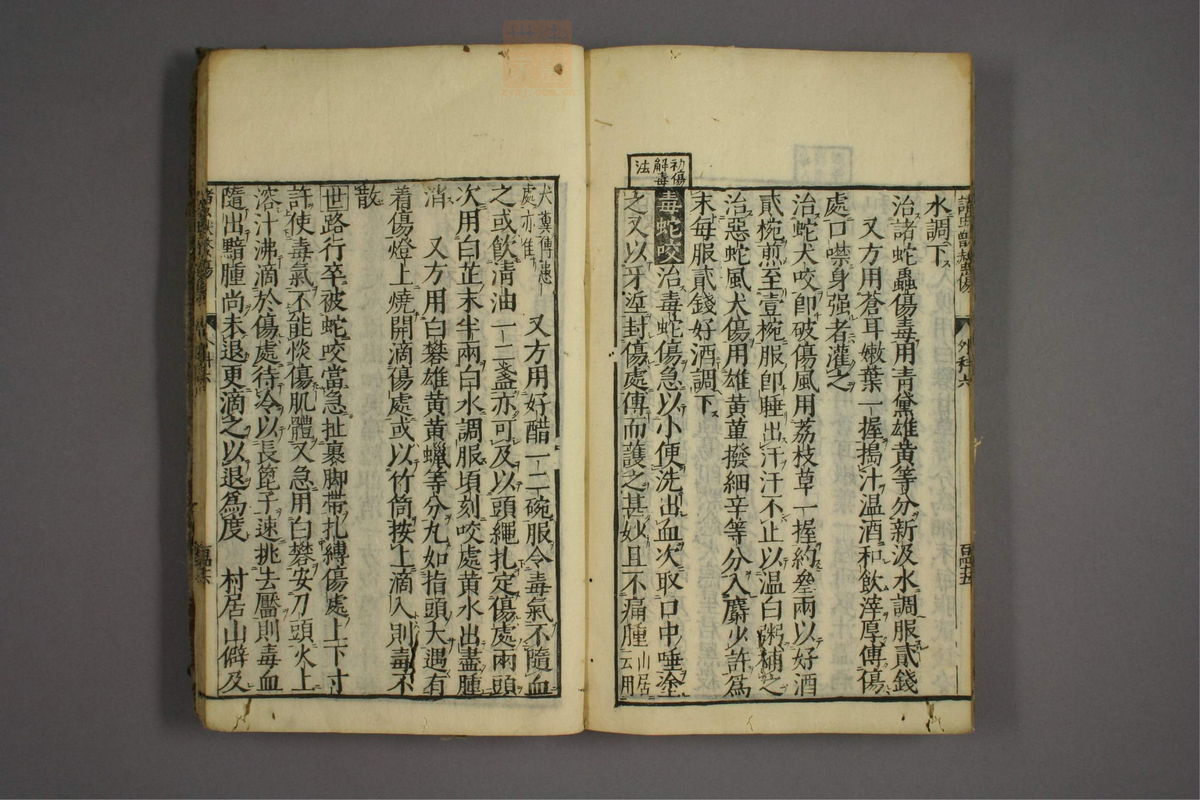 水調下
治諸蛇蟲傷毒用青黛雄黃等分新汲水調服貳錢
又方用蒼耳嫩葉一握搗汁温酒和飲滓厚傅傷
處口噤身强者灌之
治蛇犬咬卽破傷風用荔枝草一握約叄兩以好酒
貳椀煎至壹椀服卽睡出汗汗不止以温白粥補之
治惡蛇風犬傷用雄黃萆撥細辛等分入麝少許為
末每服貳錢好酒調下
初傷
解毒
法
毒蛇咬 治毒蛇傷急以小便洗出血次取口中唾塗
之又以牙垽封傷處傅而護之甚妙且不痛腫 山居云用
外科六
犬糞傅患處亦維 又方用好醋一二碗服令毒氣不隨血
之或飲清油一二盞亦可及以頭繩扎定傷處兩頭
次用白芷末半兩白水調服頃刻咬處黃水出盡腫
消 又方用白礬雄黃黃蠟等分丸如指頭大遇有
着傷燈上燒開滴傷處或以竹筒按上滴入則毒不
散
世路行卒被蛇咬當急扯裹脚帶扎縛傷處上下寸
許使毒氣不能燚傷肌體又急用白礬安刀頭火上
溶汁沸滴於傷處待冷以長篦子速挑去靨則毒血
隨出黯腫尚未退更滴之以退為度 村居山僻及